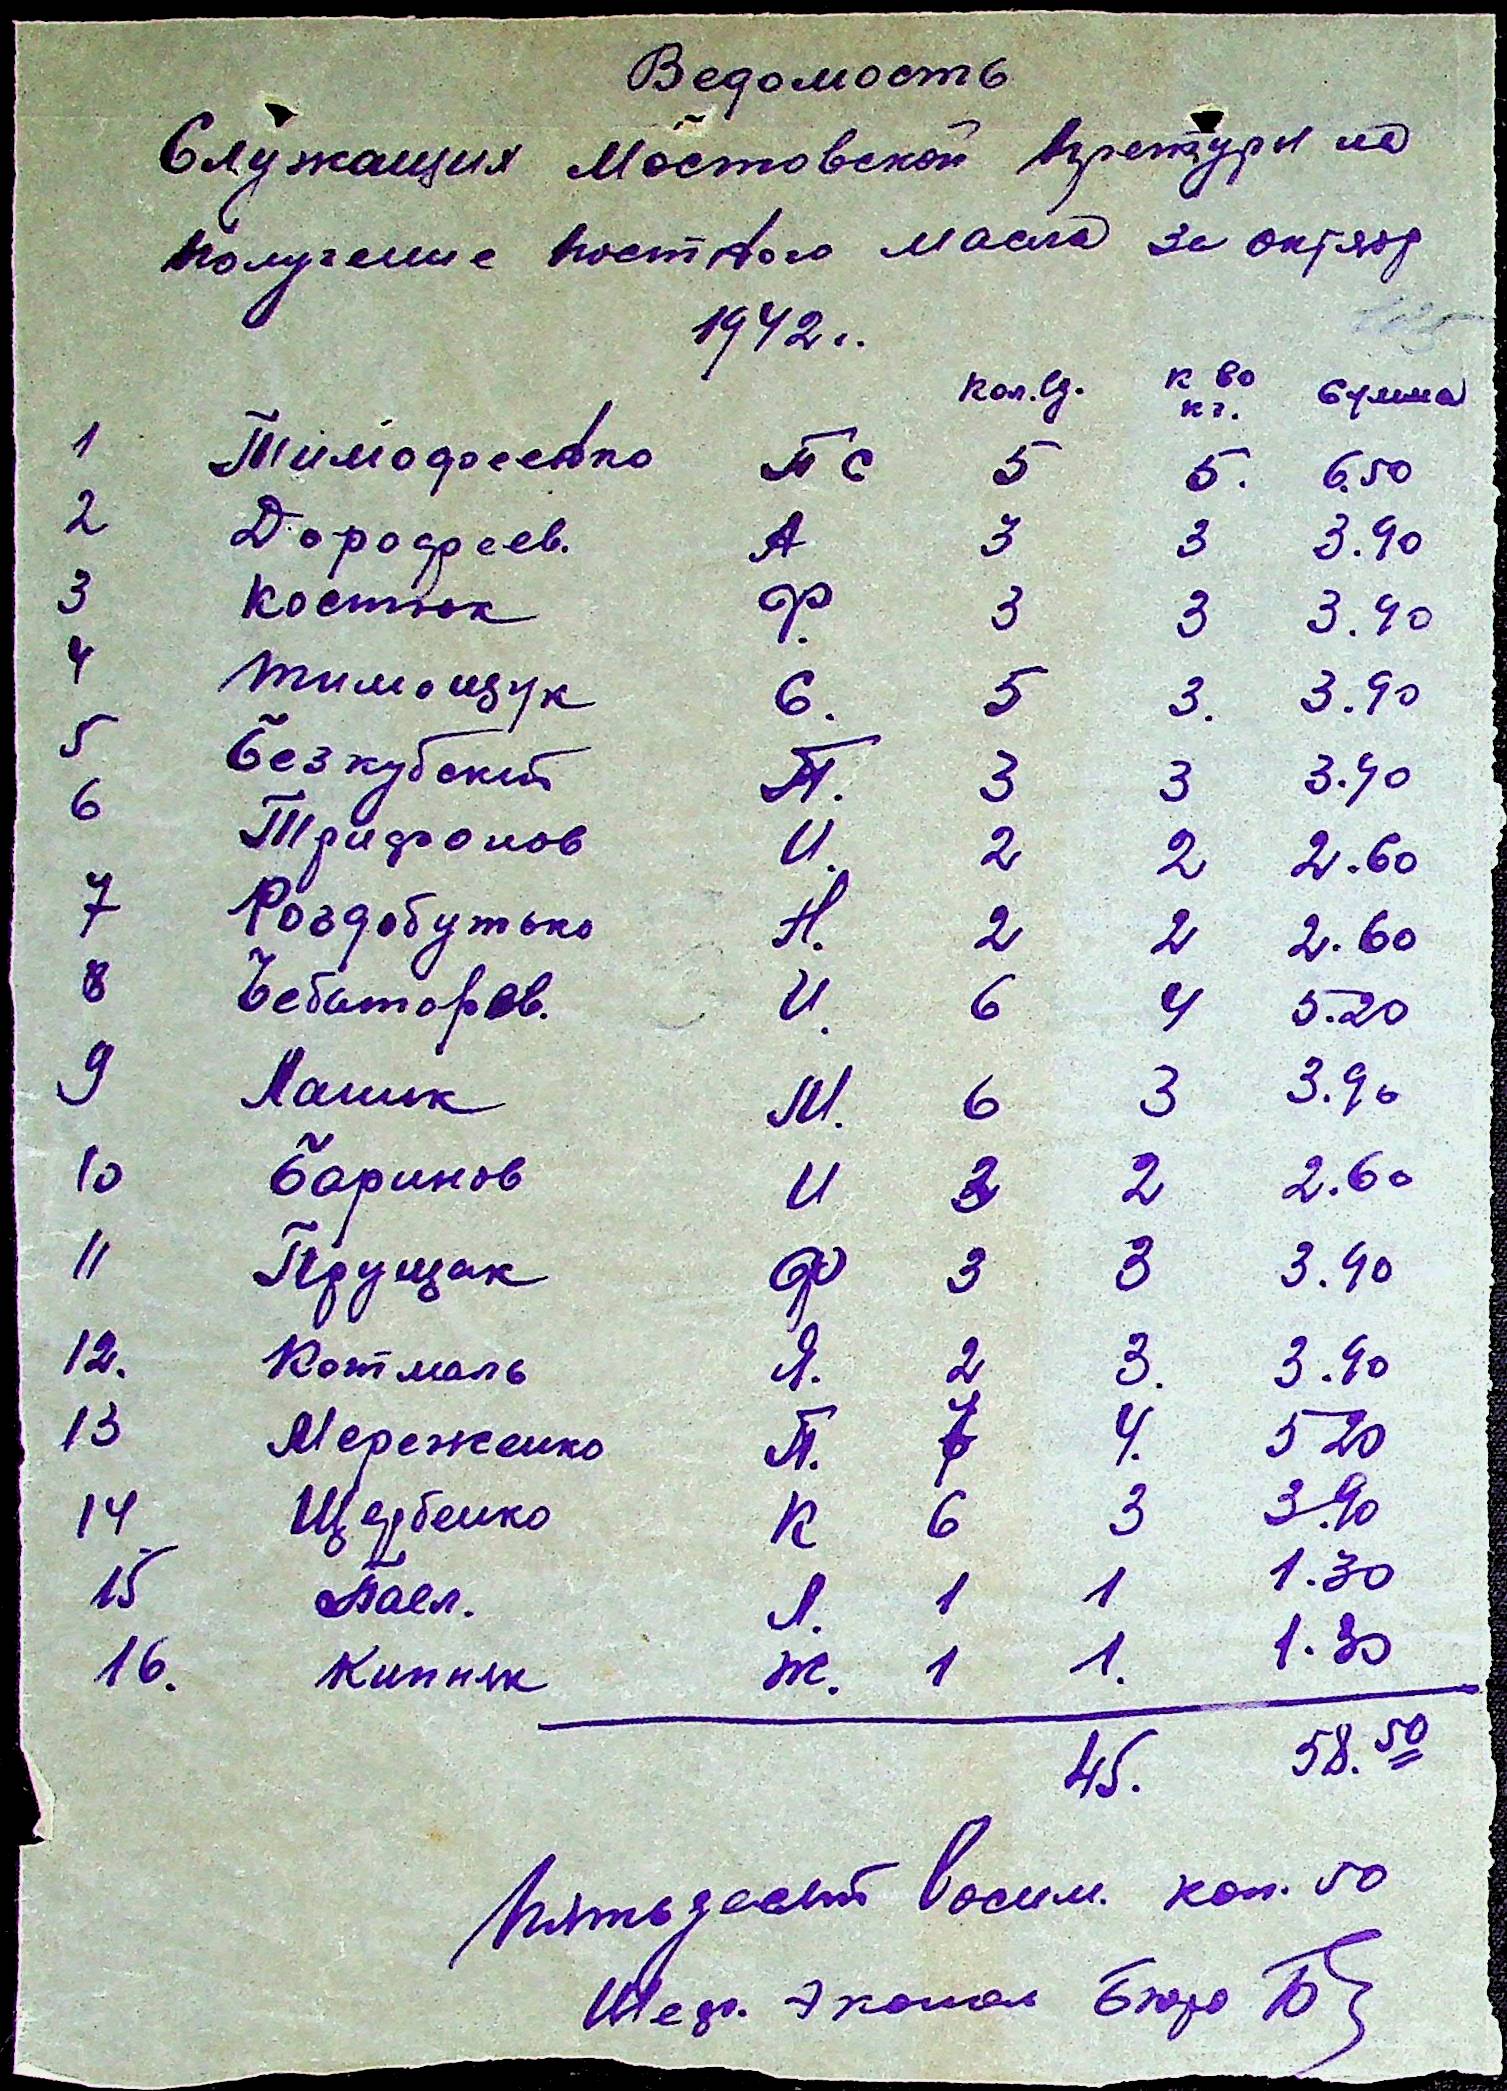 Ведомость
Служащих Мостовской на
получение постного масла за октябр
1942 г.
Кол.Ц. к во кг. Сумма
1 Тимофеенко П С 5 5. 6.50
2 Дорофеев. А 3 3 3.90
3 Костюк Ф. 3 3 3.90
4 Тимощук С. 5 3. 3.90
5 Безкубский П. 3 3 3.90
6 Трифонов И. 2 2 2.60
7 Роздобутько Н. 2 2 2.60
8 Чеботорев. И. 6 4 5.20
9 Лашик М. 6 3 3.90
10 Баринов И 3 2 2.60
11 Прущак Ф 3 3 3.90
12. Котмаль Я. 2 3. 3.90
13 Мереженко П. 7 4. 5 20
14 Щербенко К 6 3 3.90
15 Л. 1 1 1.30
16. Кипняк Ж. 1 1. 1.30
45. 58.50
Пятьдесят восим. коп. 50
Шеф. Эконом Бюро